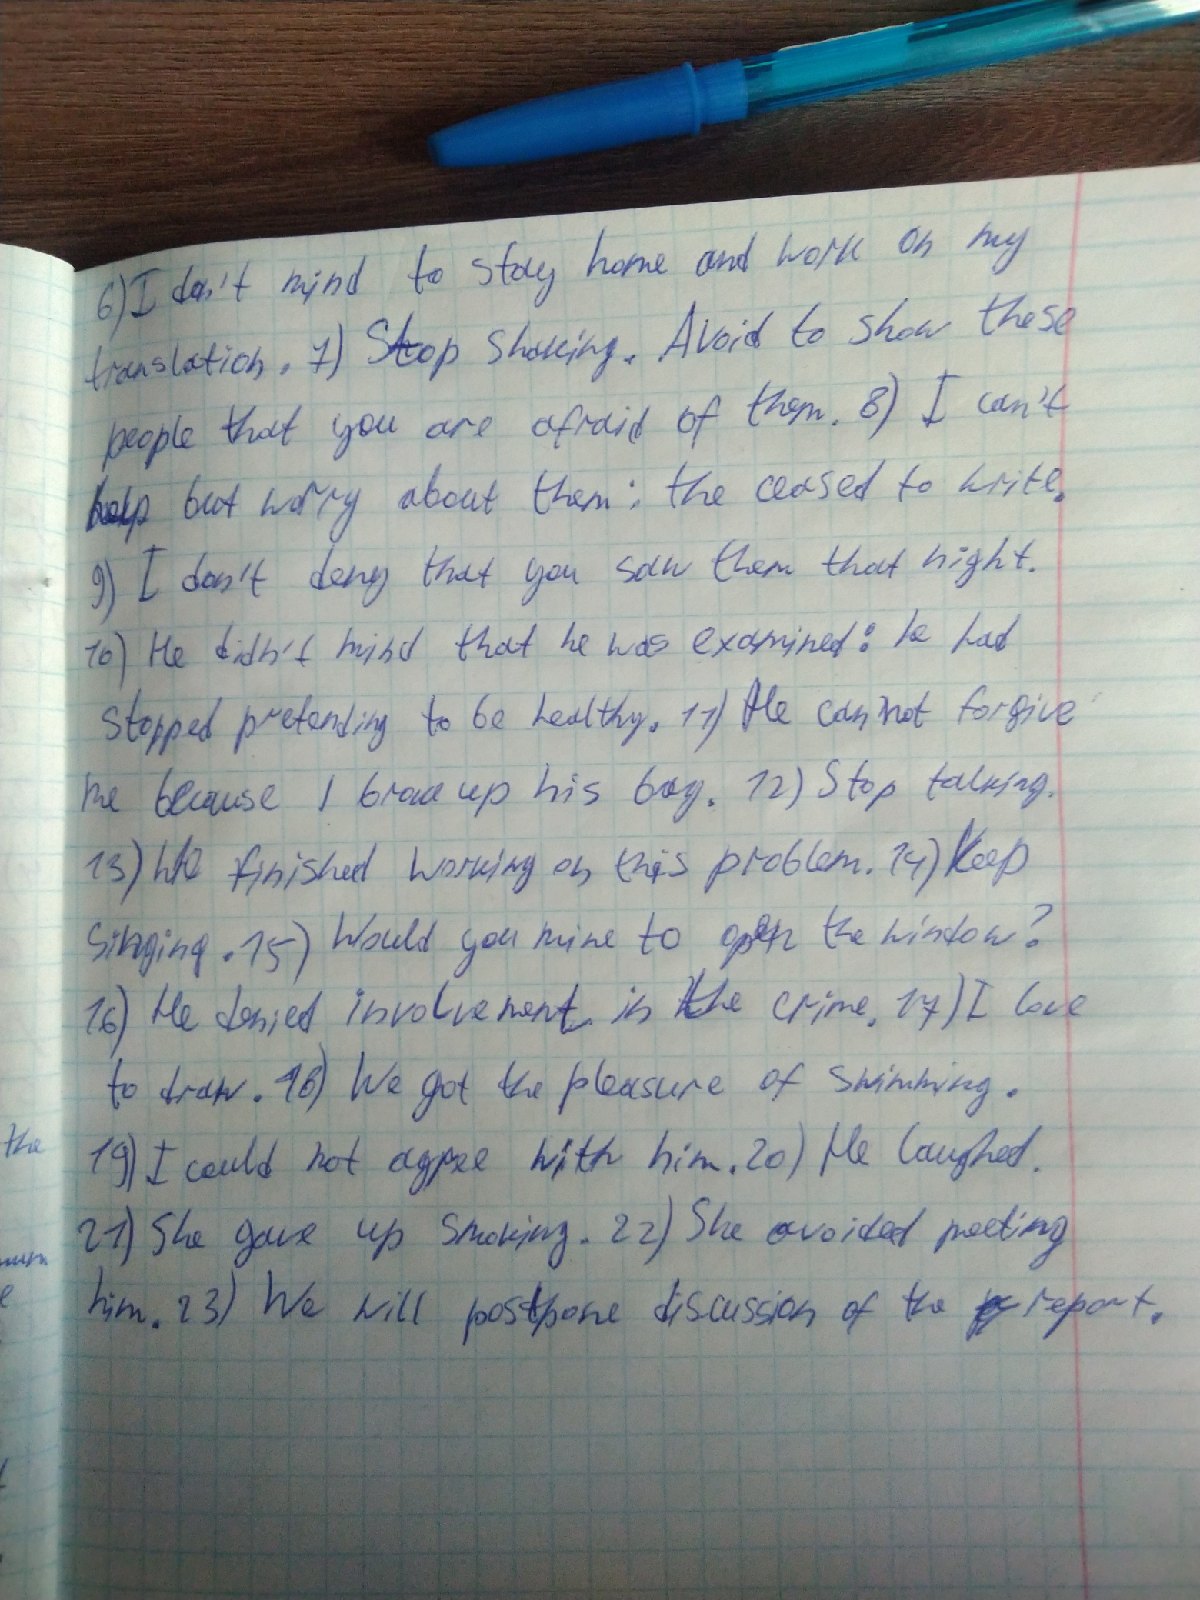 6) I don't mind to stay home and work on my
translation. 7) Stop shaking. Avoid to show these
people that you are afraid of them. 8) I can't
help but worry about them: the ceased to write.
9) I don't deny that you saw them that night.
10) He didn't mind that he was examined: he had
stopped pretending to be healthy. 11) He cannot forgive
me because I broke up his bag. 12) Stop talking.
13) We finished working on this problem. 14) Keep
singing. 15) Would you mine to open the window?
16) He denied involvement in the crime. 17) I love
to draw. 18) We got the pleasure of swimming.
19) I could not agree with him. 20) He laughed.
21) She gave up smoking. 22) She avoided meeting
him. 23) We will postpone discussion of the report.
the